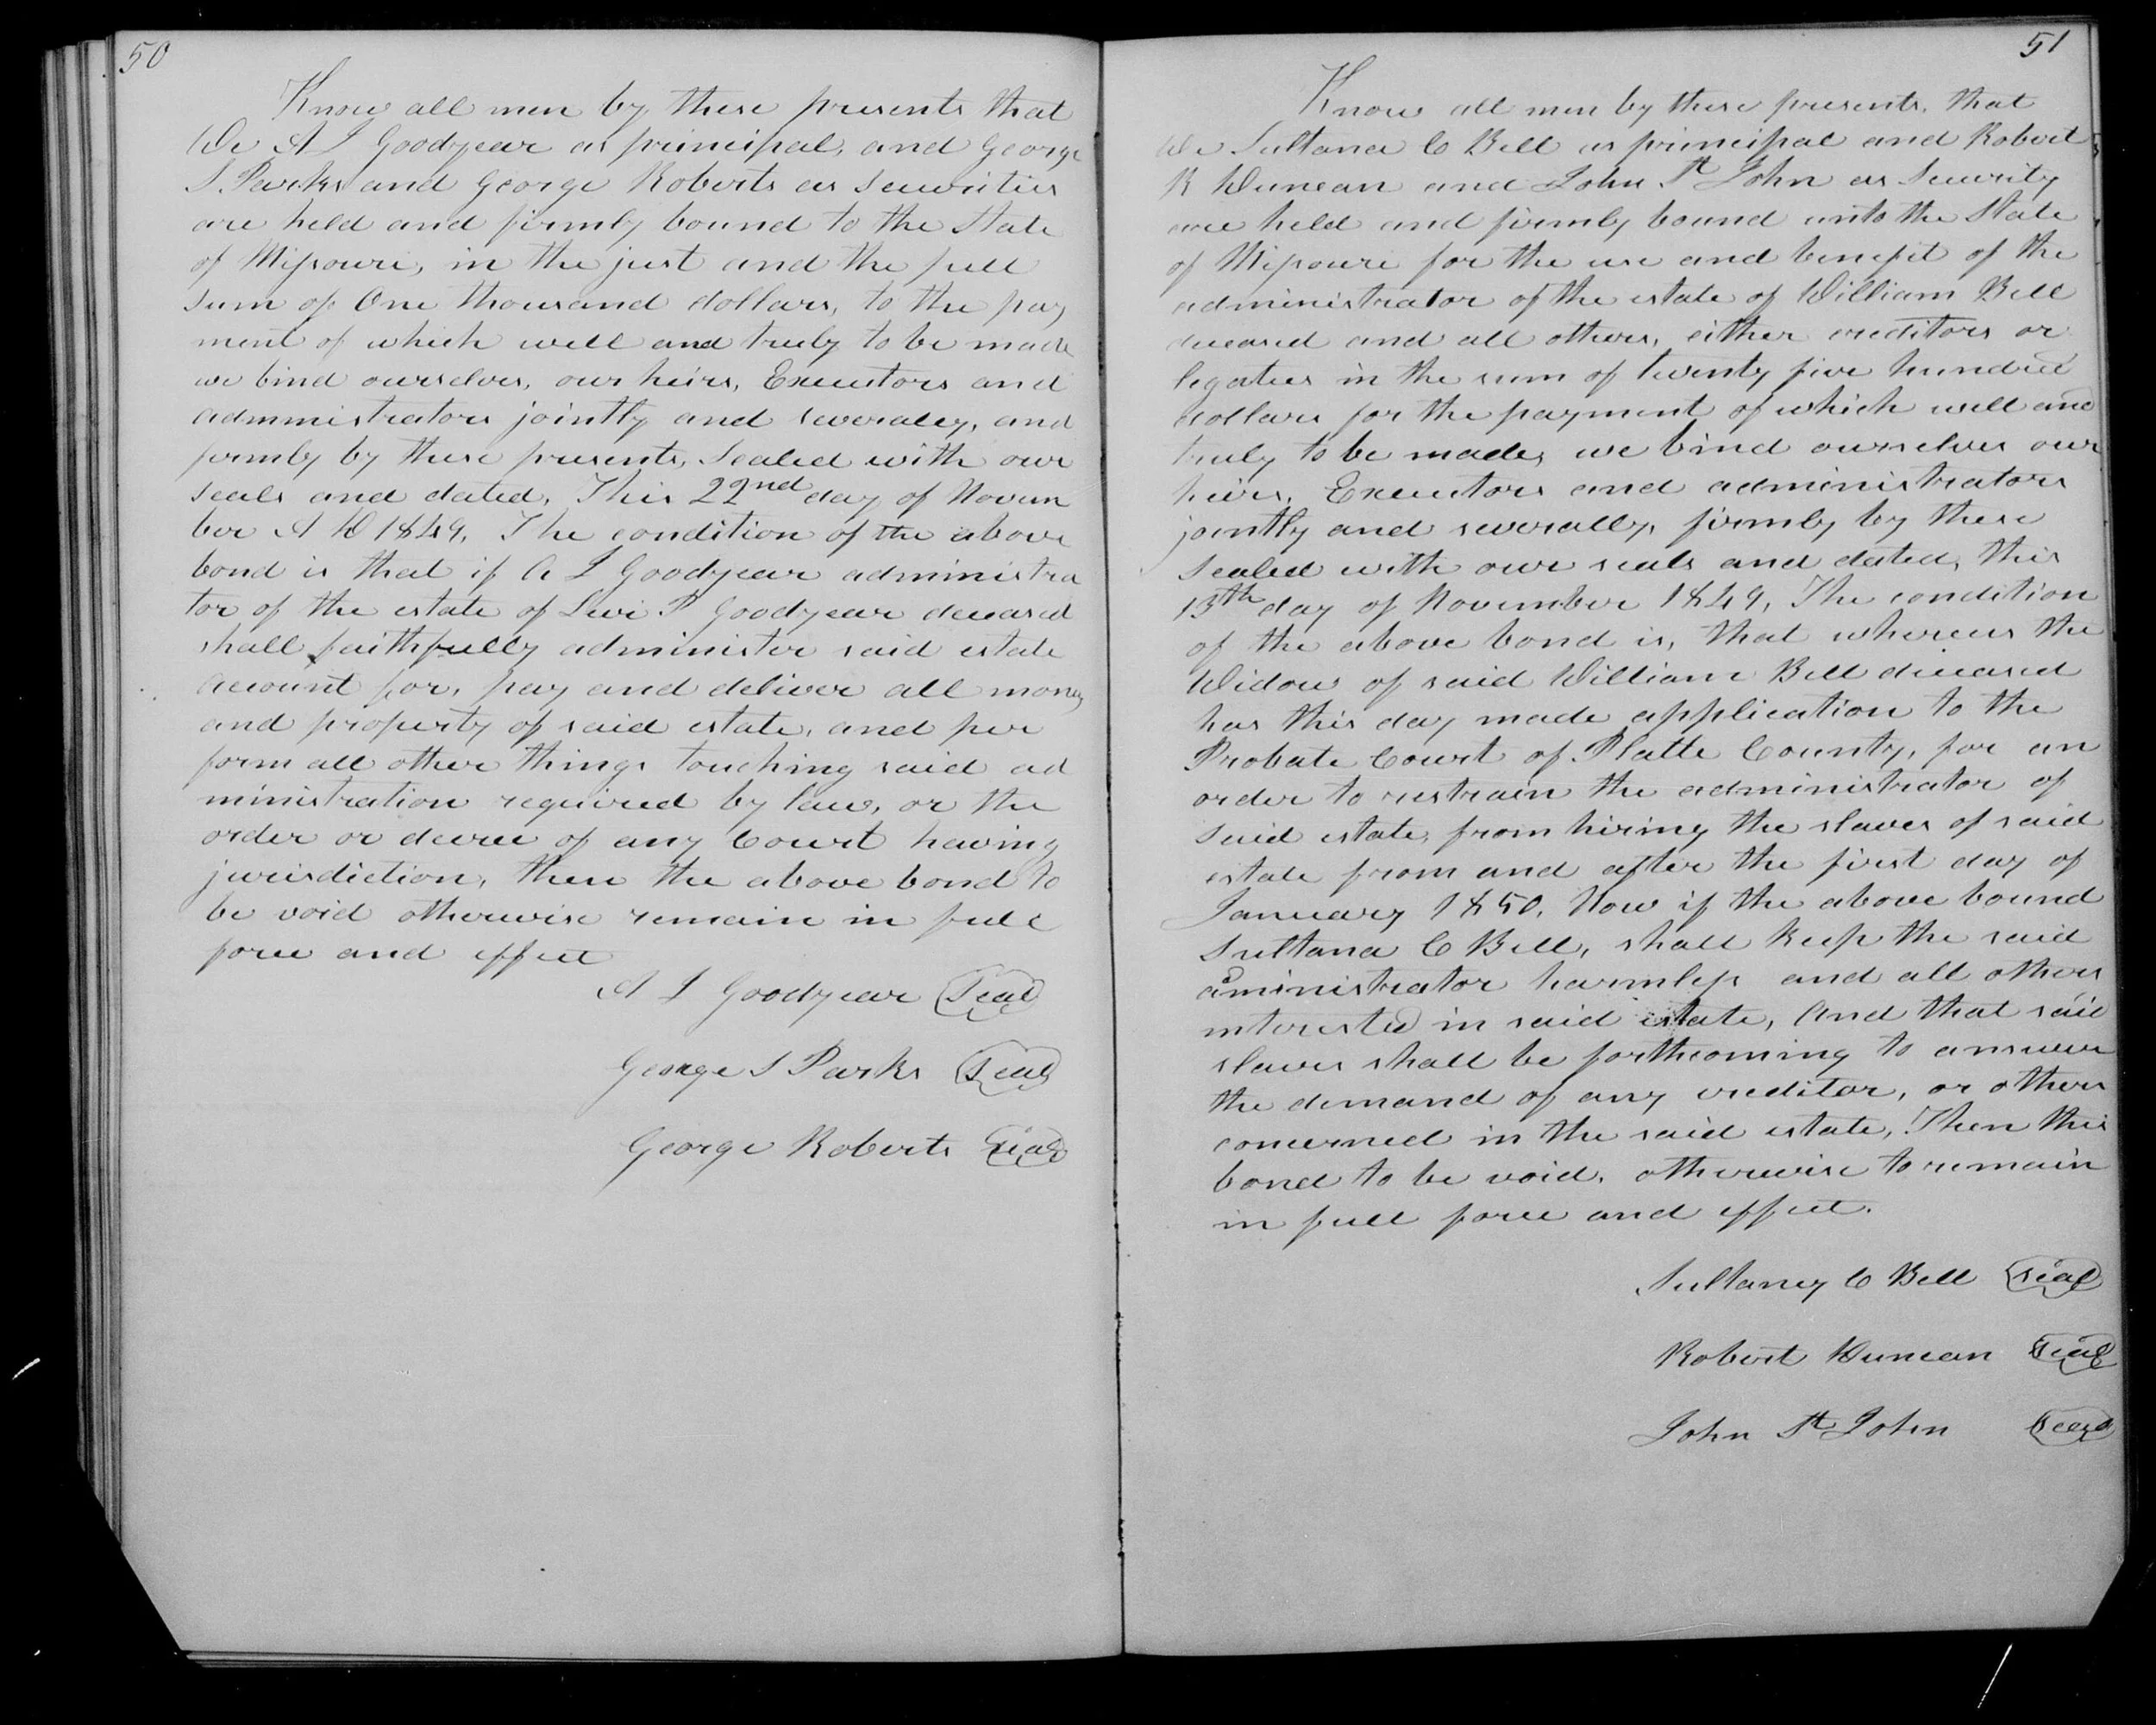 50
Know all men by these presents that
We A L Goodyear as principal, and George
S. Parks and George Roberts as Securities
are held and firmly bound to the State
of Missouri, in the just and the full
sum of One thousand dollars, to the pay
ment of which well and truly to be made
we bind ourselves, our heirs, Executors and
administrators jointly and severaley, and
firmly by these presents, Sealed with our
seals and dated, This 22nd day of Novem
ber A D 1849, The condition of the above
bond is that if A L Goodyear administra
tor of the estate of Levi P Goodyear deceased
shall faithfully administer said estate
account for, pay and deliver all money
and property of said estate, and per
form all other things touching said ad
ministration required by law, or the
order or decree of any Court having
jurisdiction, then the above bond to
be void otherwise remain in full
force and effect
A L Goodyear Seal
George S Parks Seal
George Roberts Seal
51
Know all men by these presents, that
We Sultana C Bell as principal and Robert
R Duncan and John St John as Security
are held and firmly bound unto the State
of Missouri for the use and benefit of the
administrator of the estate of William Bell
deceased and all others, either creditors or
legatees in the sum of twenty five hundred
dollars for the payment of which well and
truly to be made, we bind ourselves our
heirs, Executors and administrators
jointly and severally, firmly by these
Sealed with our seals and dated, this
13th day of November 1849, The condition
of the above bond is, that whereas the
Widow of said William Bell deceased
has this day made application to the
Probate Court of Platte County, for an
order to restrain the administrator of
said estate, from hiring the slaves of said
estate from and after the first day of
January 1850, Now if the above bound
Sultana C Bell, shall keep the said
administrator harmless and all others
interested in said estate, And that said
slaves shall be forthcoming to answer
the demand of any creditor, or others
concerned in the said estate, Then this
bond to be void, otherwise to remain
in full force and effect.
Sultaney C Bell Seal
Robert Duncan Seal
John St John Seal